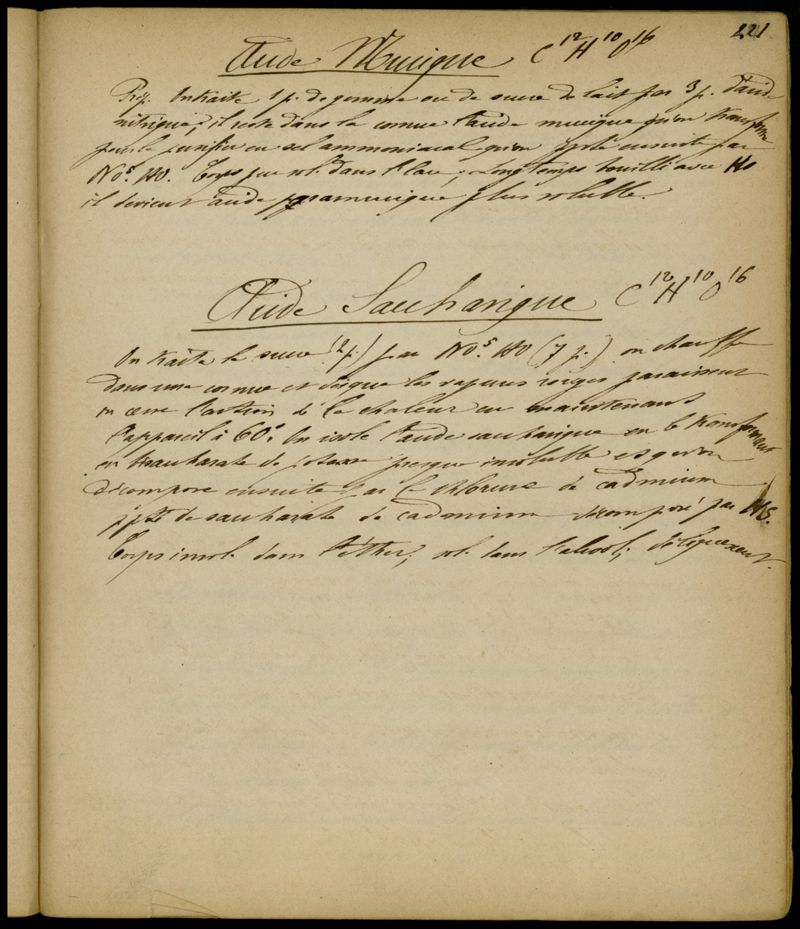 221
Acide Mucique C¹²H¹⁰O¹⁶
Prép. On traite 1 p. de gomme ou de sucre de lait par 3 p. d'acide
nitrique; il reste dans la cornue l'acide mucique qu'on transforme
pour le purifier en sel ammoniacal qu'on ppté ensuite par
NO⁵.HO. Corps peu sol. dans l'eau; Longtemps bouilli avec HO
il devient acide paramucique plus soluble.
Acide Saccharique C¹²H¹⁰O¹⁶
On traite le sucre (2 p.) par NO⁵.HO (7 p.) on chauffe
dans une cornue et dès que les vapeurs rouges paraissent
on cesse l'action de la chaleur en maintenant
l'appareil à 60°. On isole l'acide saccharique en le transformant
en bisaccharate de potasse presque insoluble et qu'on
décompose ensuite par le chlorure de cadmium
ppté de saccharate de cadmium décomposé par HS.
Corps insol. dans l'éther, sol. dans l'alcool; déliquescent.